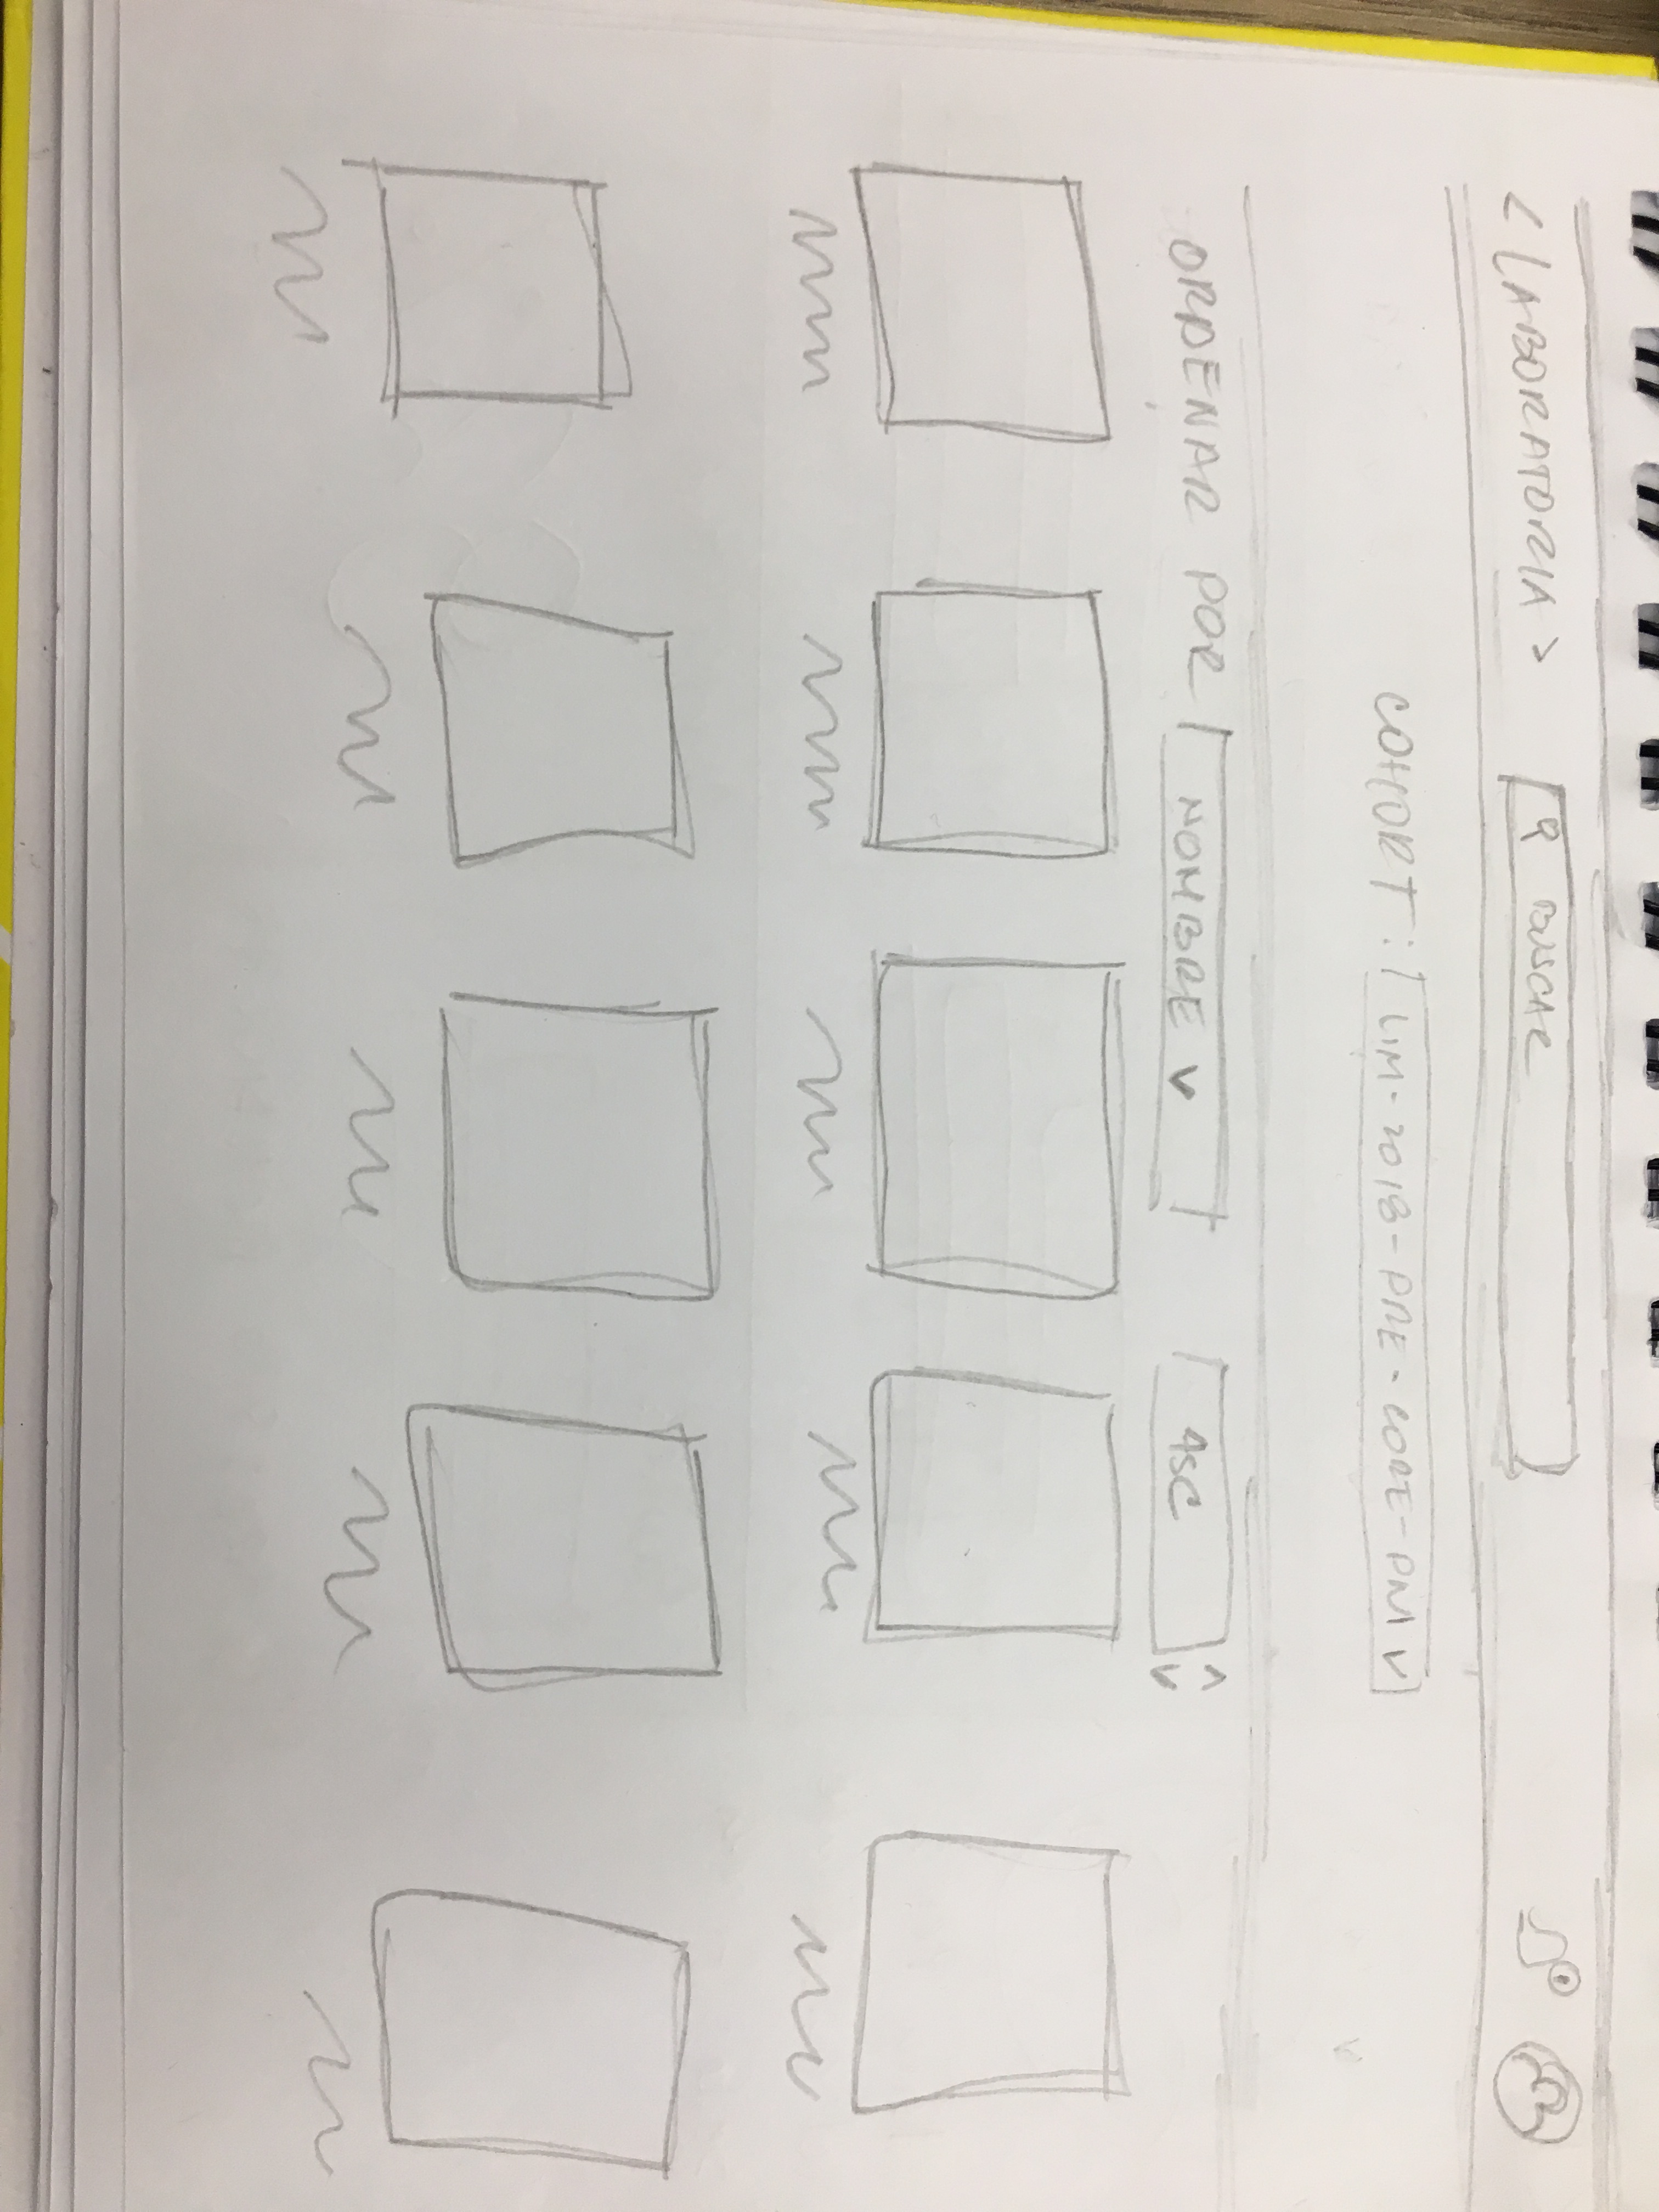 < LABORATORIA >
BUSCAR
COHORT: LIM-2018-PRE-CORE-PM
ORDENAR POR NOMBRE ASC